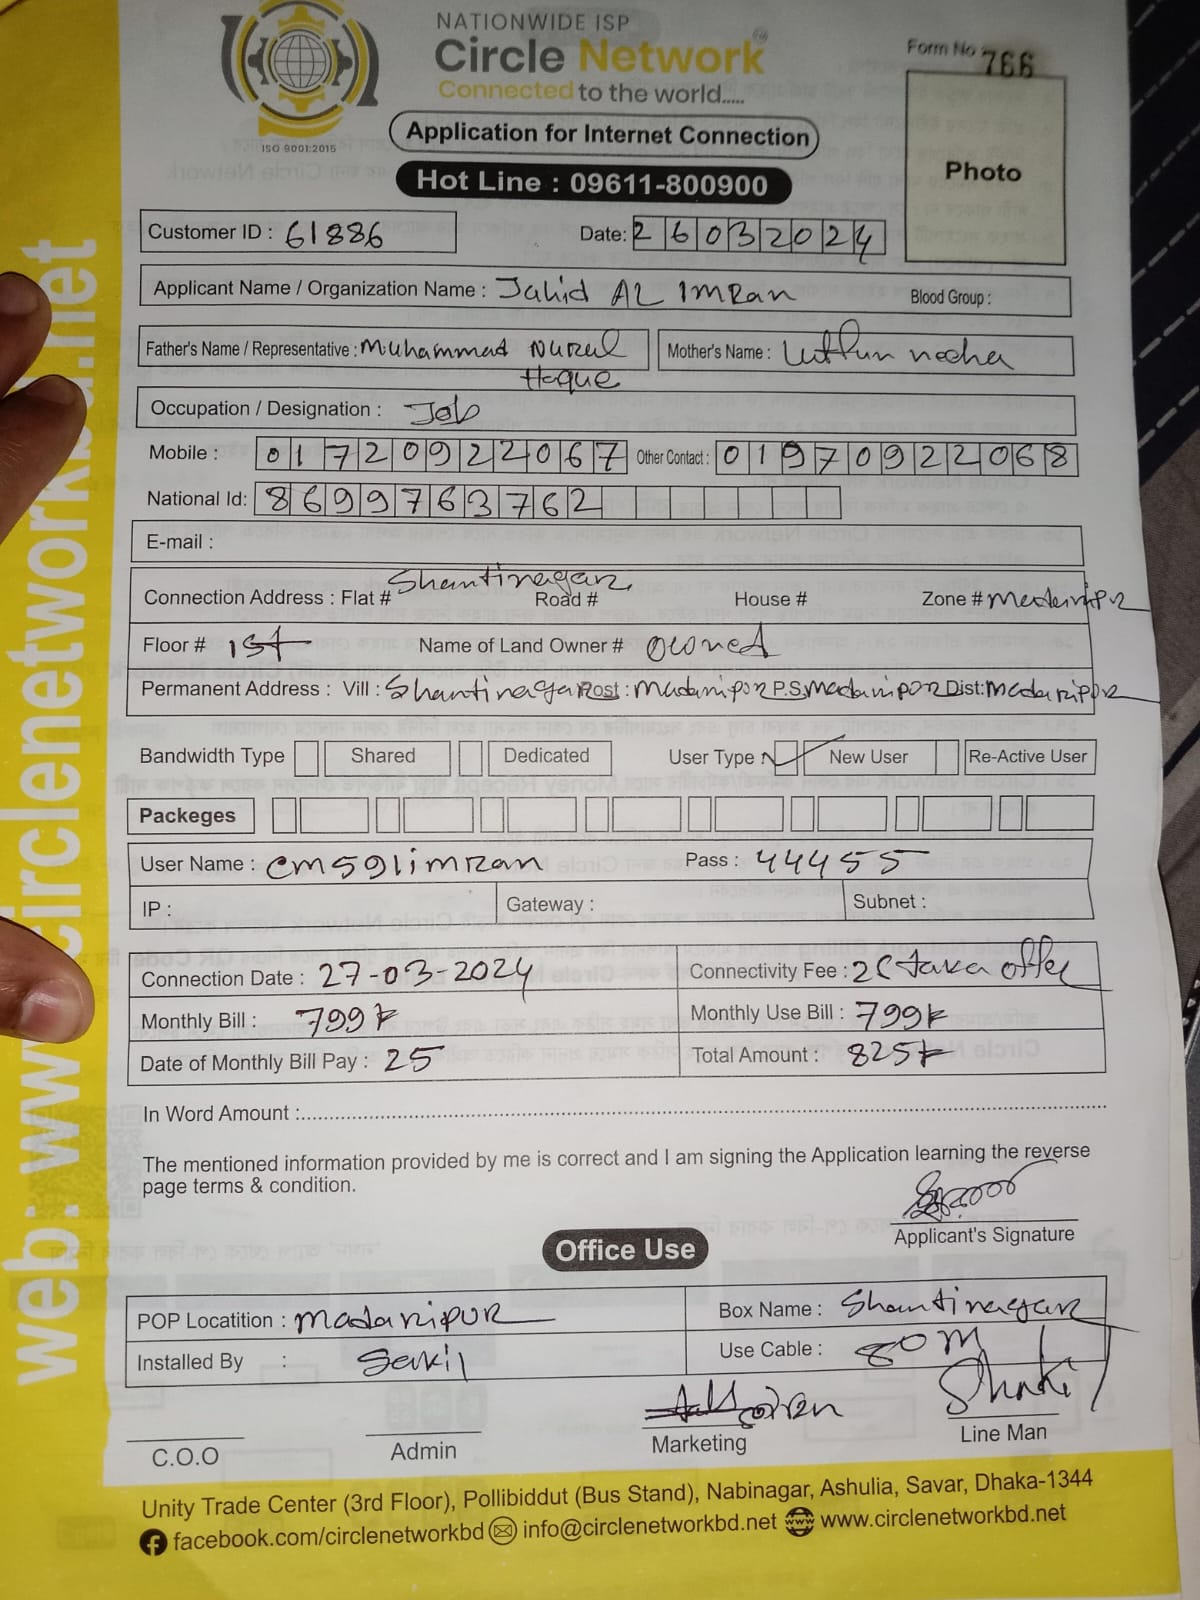 NATIONWIDE ISP
Circle Network
Connected to the world.....
ISO 9001:2015
Form No 766
Application for Internet Connection
Hot Line : 09611-800900
Photo
Customer ID : 61886
Date: 26032024
Applicant Name / Organization Name : Jahid AL Imran
Blood Group :
Father's Name / Representative : Muhammad Nurul Hoque
Mother's Name : Lutfun necha
Occupation / Designation : Job
Mobile : 01720922067 Other Contact : 01970922068
National Id: 8699763762
E-mail :
Connection Address : Flat # Shantinagar Road # House # Zone #
Floor # 1st Name of Land Owner # owned
Permanent Address : Vill : Shantinagar Post : Madaripor P.S, Madaripor Dist: Madaripor
Bandwidth Type Shared Dedicated User Type New User Re-Active User
Packeges
User Name : cm591imran Pass : 44455
IP : Gateway : Subnet :
Connection Date : 27-03-2024 Connectivity Fee : taka offer
Monthly Bill : 799 Monthly Use Bill : 799
Date of Monthly Bill Pay : 25 Total Amount : 825
In Word Amount :
The mentioned information provided by me is correct and I am signing the Application learning the reverse
page terms & condition.
Applicant's Signature
Office Use
POP Locatition : Madaripur Box Name : Shantinagar
Installed By : Sakil Use Cable : 80M
Shakil
C.O.O Admin Marketing Line Man
Unity Trade Center (3rd Floor), Pollibiddut (Bus Stand), Nabinagar, Ashulia, Savar, Dhaka-1344
facebook.com/circlenetworkbd info@circlenetworkbd.net www.circlenetworkbd.net
web: www.circlenetworkbd.net